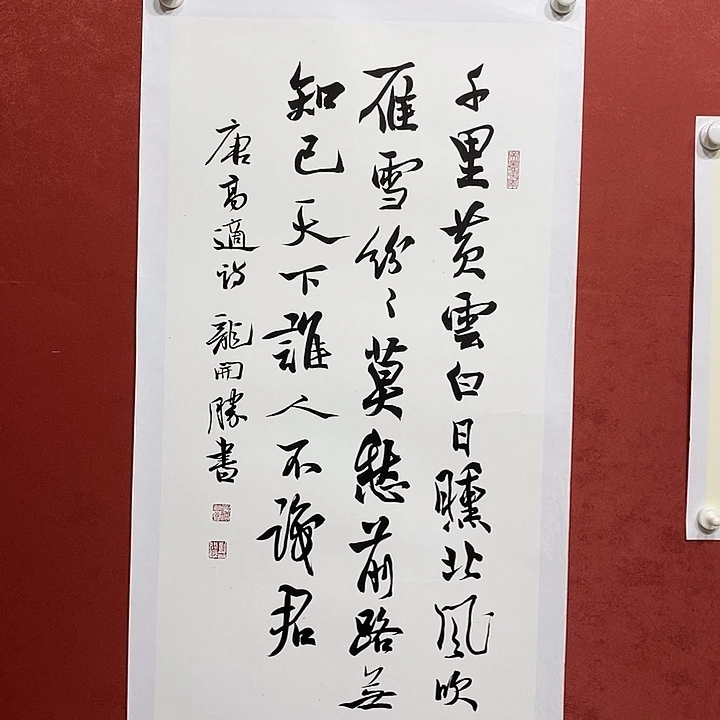 千里黄雲白日曛北風吹
雁雪紛〻莫愁前路無
知己天下誰人不識君
唐高適詩 龍開勝書